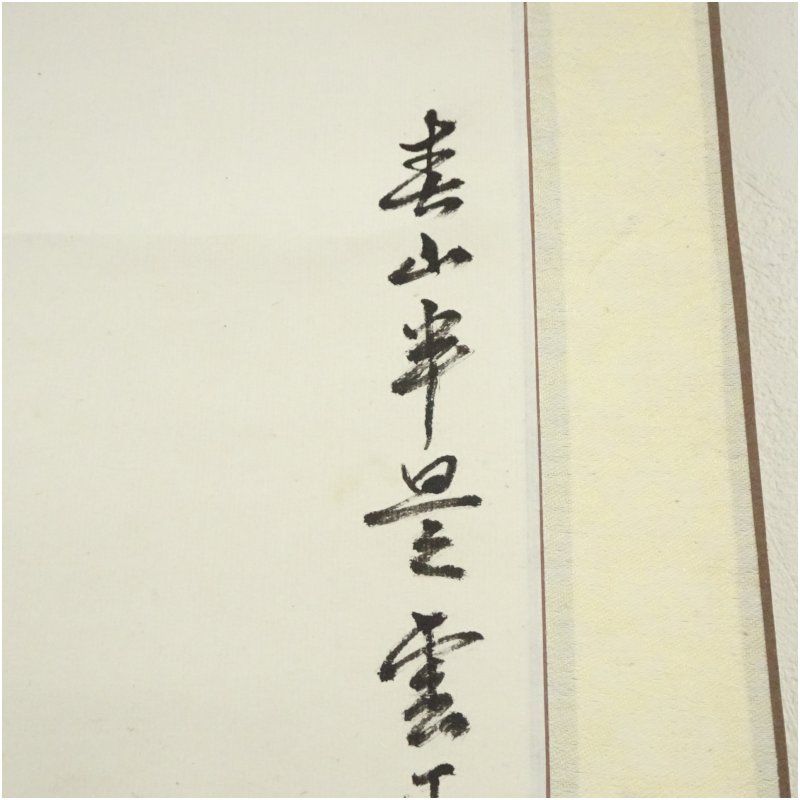 春山半是雲